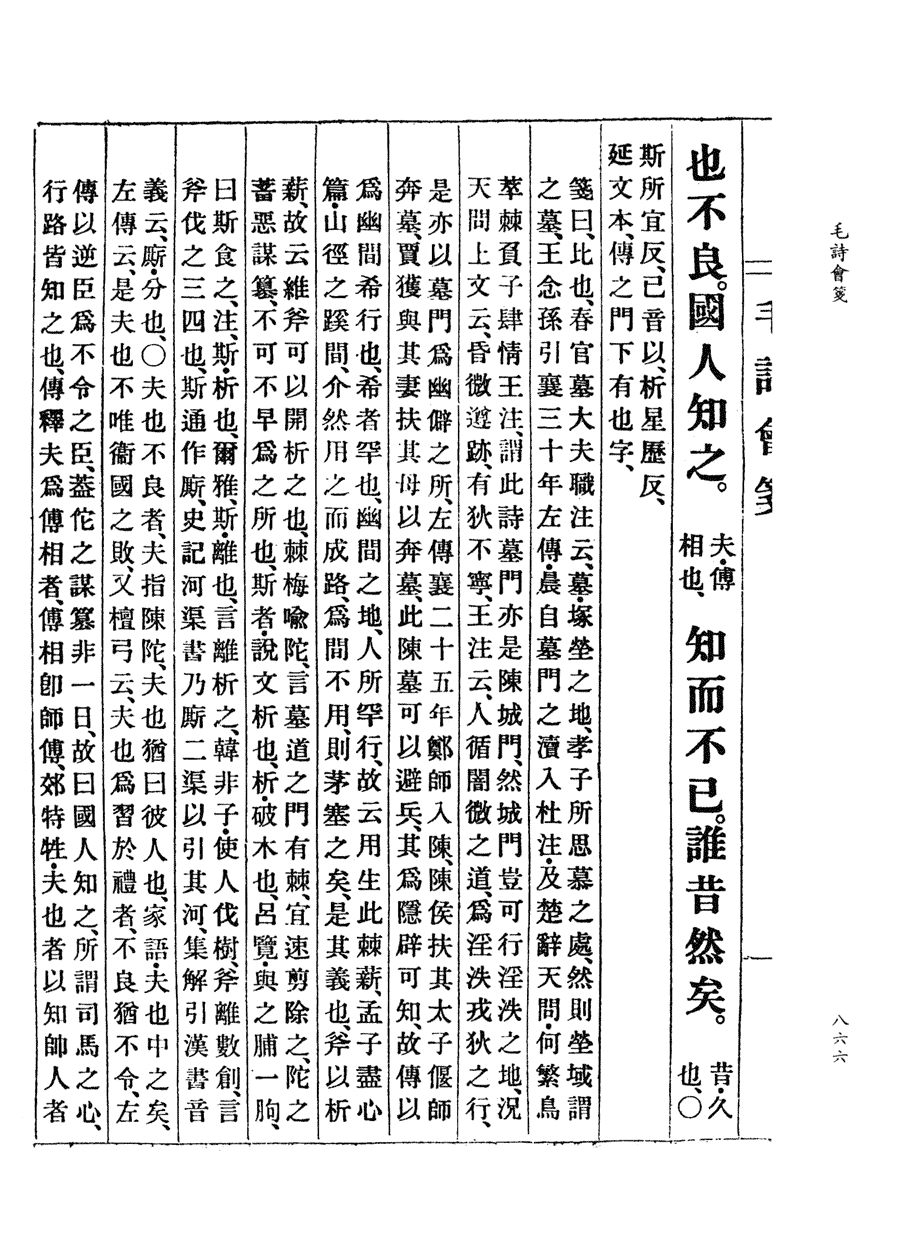 毛詩會箋
八六六
毛詩會箋
也不良。國人知之。夫・傅相也、知而不已。誰昔然矣。昔・久也、〇
斯所宜反、已音以、析星歷反、
延文本、傳之門下有也字、
箋曰、比也、春官墓大夫職注云、墓・塚塋之地、孝子所思慕之處、然則塋域謂
之墓、王念孫引襄三十年左傳・晨自墓門之瀆入杜注・及楚辭天問・何繁鳥
萃棘負子肆情王注、謂此詩墓門亦是陳城門、然城門豈可行淫泆之地、況
天問上文云、昏微遵跡、有狄不寧、王注云、人循闇微之道、爲淫泆戎狄之行、
是亦以墓門爲幽僻之所、左傳襄二十五年鄭師入陳、陳侯扶其太子偃師
奔墓、賈獲與其妻扶其母以奔墓、此陳墓可以避兵、其爲隱辟可知、故傳以
爲幽間希行也、希者罕也、幽間之地、人所罕行、故云用生此棘薪、孟子盡心
篇・山徑之蹊間、介然用之而成路、爲間不用、則茅塞之矣、是其義也、斧以析
薪、故云維斧可以開析之也、棘梅喩陀、言墓道之門有棘、宜速剪除之、陀之
蓄惡謀篡、不可不早爲之所也、斯者・說文析也、析・破木也、呂覽・與之脯一朐、
曰斯食之、注、斯・析也、爾雅、斯・離也、言離析之、韓非子・使人伐樹、斧離數創、言
斧伐之三四也、斯通作廝、史記河渠書乃廝二渠以引其河、集解引漢書音
義云、廝・分也、〇夫也不良者、夫指陳陀、夫也猶曰彼人也、家語・夫也中之矣、
左傳云、是夫也不唯衞國之敗、又檀弓云、夫也爲習於禮者、不良猶不令、左
傳以逆臣爲不令之臣、蓋佗之謀篡非一日、故曰國人知之、所謂司馬之心、
行路皆知之也、傳釋夫爲傅相者、傅相卽師傅、郊特牲・夫也者以知帥人者